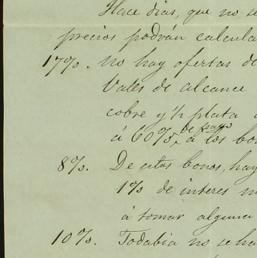 Hace dias, que no se
precios podran calcula
17%. no hay ofertas de
Vales de alcance
cobre y ½ plata
á 60%, á los bo
8%. De estos bonos, hay
1% de interes m
á tomar alguna
10%. Todabia no se ha